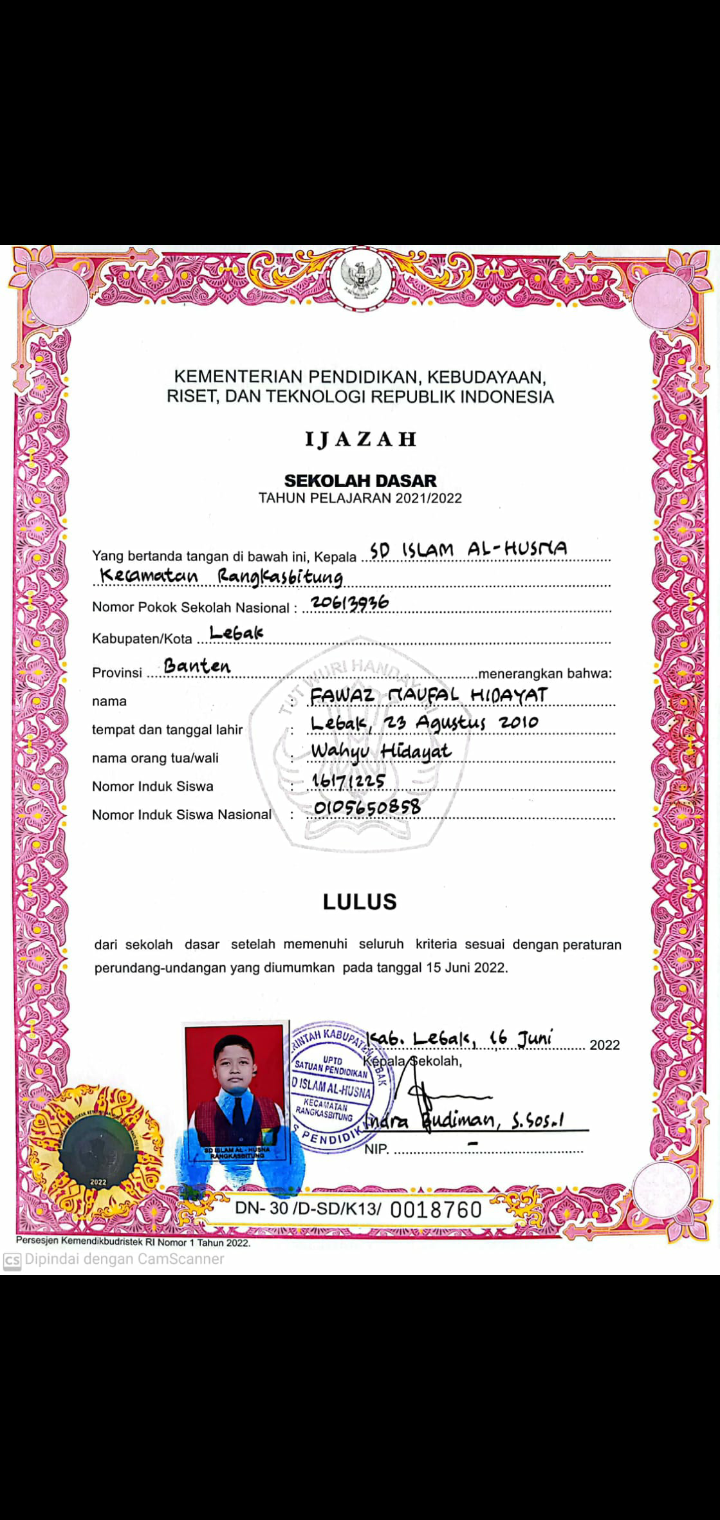 KEMENTERIAN PENDIDIKAN, KEBUDAYAAN,
RISET, DAN TEKNOLOGI REPUBLIK INDONESIA
IJAZAH
SEKOLAH DASAR
TAHUN PELAJARAN 2021/2022
Yang bertanda tangan di bawah ini, Kepala SD ISLAM AL-HUSNA
Kecamatan Rangkasbitung
Nomor Pokok Sekolah Nasional : 20613936
Kabupaten/Kota Lebak
Provinsi Banten menerangkan bahwa:
nama : FAWAZ NAUFAL HIDAYAT
tempat dan tanggal lahir : Lebak, 23 Agustus 2010
nama orang tua/wali : Wahyu Hidayat
Nomor Induk Siswa : 16171225
Nomor Induk Siswa Nasional : 0105650858
TUT WURI HANDAYANI
LULUS
dari sekolah dasar setelah memenuhi seluruh kriteria sesuai dengan peraturan
perundang-undangan yang diumumkan pada tanggal 15 Juni 2022.
Kab. Lebak, 16 Juni 2022
Kepala Sekolah,
Indra Budiman, S.Sos.I
NIP. -
KABUPATEN LEBAK
UPTD
SATUAN PENDIDIKAN
D ISLAM AL-HUSNA
KECAMATAN
RANGKASBITUNG
SD ISLAM AL - HUSNA
RANGKASBITUNG
2022
DN- 30 /D-SD/K13/ 0018760
Persesjen Kemendikbudristek RI Nomor 1 Tahun 2022.
CS Dipindai dengan CamScanner